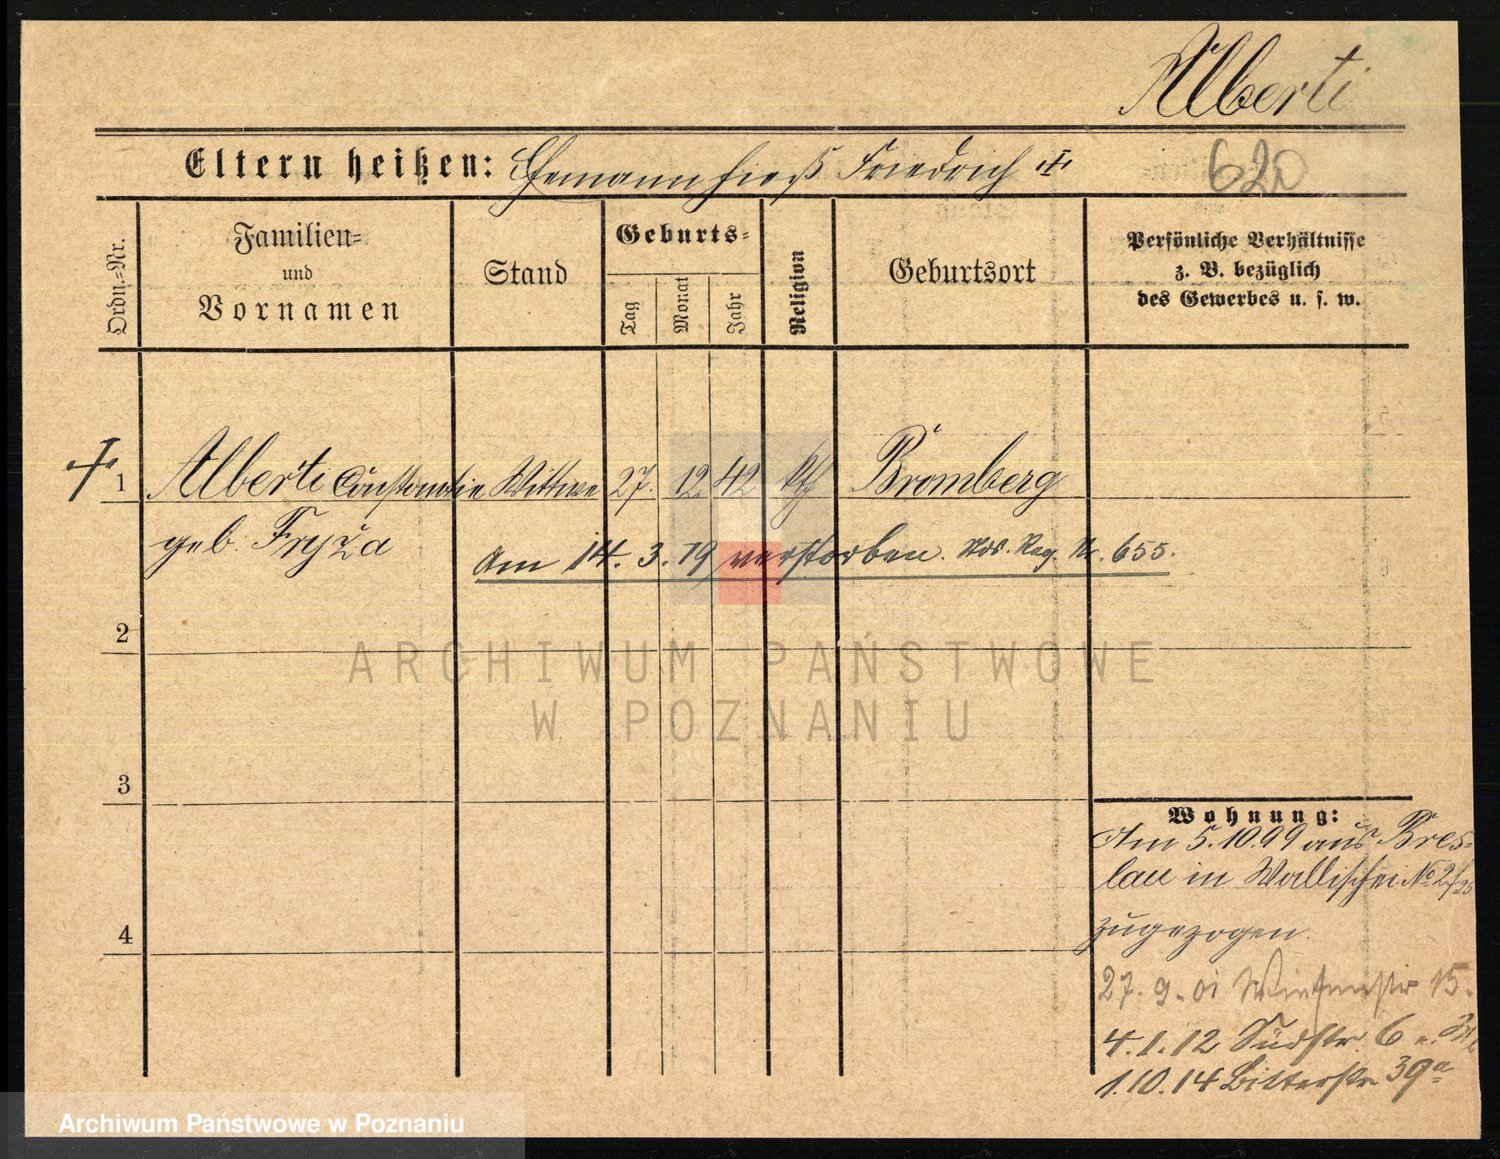 Alberti
Eltern heißen: Ehemann hieß Friedrich
620
Ordn.-Nr.
Familien-
und
Vornamen
Stand
Geburts-
Tag
Monat
Jahr
Religion
Geburtsort
Persönliche Verhältnisse
z. B. bezüglich
des Gewerbes u. s. w.
1 Alberti Constantia Wittwe 27. 12. 42 kth Bromberg
geb: Fryża
Am 14. 3. 19 verstorben. Reg. Nr. 655.
2
ARCHIWUM PAŃSTWOWE
W POZNANIU
3
4
Wohnung:
Am 5.10.99 aus Bres-
lau in Wallischei No 2/
zugezogen.
27. 9. 01 15.
4. 1. 12 Südstr. 6
1. 10. 14 Bitterstr 39a
Archiwum Państwowe w Poznaniu